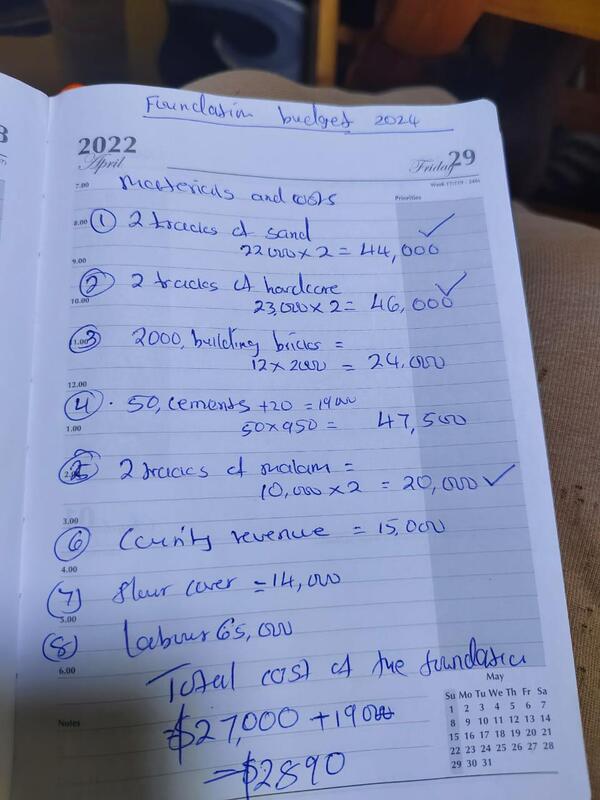 Foundation budget 2024
2022
April
Friday 29
Week 17/119 - 246
7.00
Priorities
Materials and costs
8.00 ① 2 tracks of sand
22000 x 2 = 44,000 ✓
9.00
② 2 tracks of hardcore
10.00 23,000 x 2 = 46,000 ✓
③ 2000, building bricks =
12 x 2000 = 24.000
12.00
④ · 50, cements +20 = 19000
1.00 50 x 950 = 47,500
⑤ 2 tracks of malam =
10,000 x 2 = 20,000 ✓
3.00
⑥ County revenue = 15,000
4.00
⑦ floor cover = 14,000
5.00
⑧ Labour 65,000
6.00
Total cost of the foundation
Notes
= $27,000 + 19000
= $2890
May
Su Mo Tu We Th Fr Sa
1 2 3 4 5 6 7
8 9 10 11 12 13 14
15 16 17 18 19 20 21
22 23 24 25 26 27 28
29 30 31